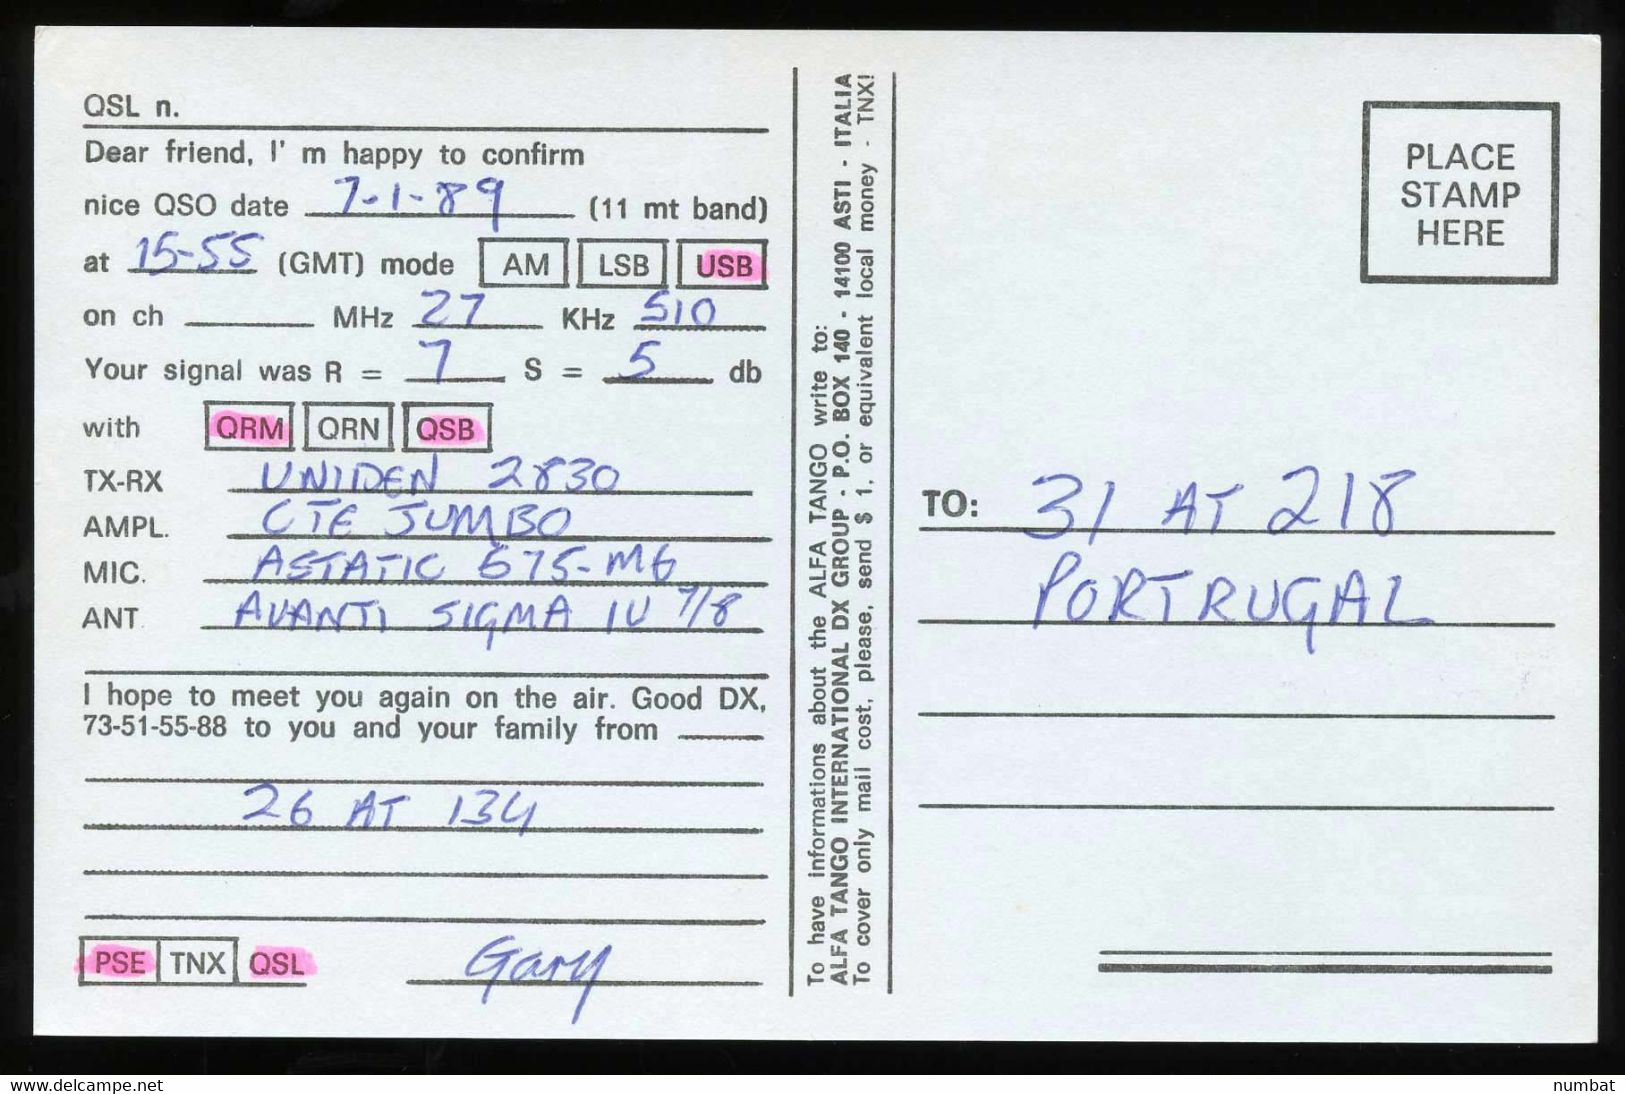 QSL n.
Dear friend, I' m happy to confirm
nice QSO date 7-1-89 (11 mt band)
at 15-55 (GMT) mode AM LSB USB
on ch MHz 27 KHz 510
Your signal was R = 7 S = 5 db
with QRM QRN QSB
TX-RX UNIDEN 2830
AMPL. CTE JUMBO
MIC. ASTATIC 575-M6
ANT. AVANTI SIGMA IV 7/8
I hope to meet you again on the air. Good DX,
73-51-55-88 to you and your family from
26 AT 134
PSE TNX QSL Gary
To have informations about the ALFA TANGO write to:
ALFA TANGO INTERNATIONAL DX GROUP - P.O. BOX 140 - 14100 ASTI - ITALIA
To cover only mail cost, please, send $ 1, or equivalent local money - TNX!
PLACE
STAMP
HERE
TO: 31 AT 218
PORTRUGAL
delcampe.net
numbat